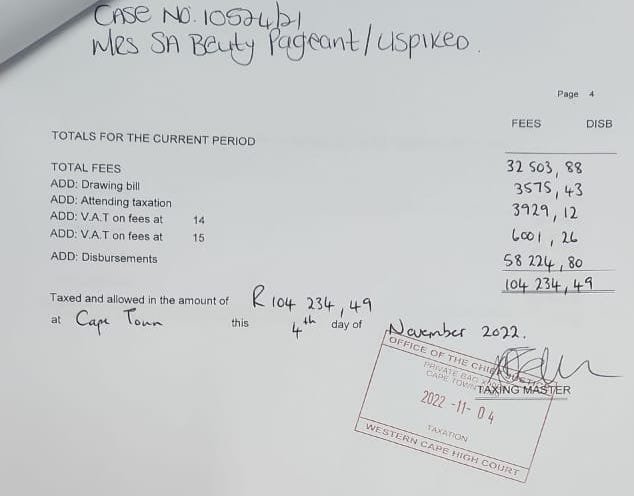 CASE NO. 10524/21
Mrs SA Beuty Pageant/USPIKED.
Page 4
FEES DISB
TOTALS FOR THE CURRENT PERIOD
TOTAL FEES 32 503,88
ADD: Drawing bill 3575,43
ADD: Attending taxation 3929,12
ADD: V.A.T on fees at 14
ADD: V.A.T on fees at 15 6001,26
ADD: Disbursements 58 224,80
104 234,49
Taxed and allowed in the amount of R 104 234,49
at Cape Town this 4th day of November 2022.
TAXING MASTER
OFFICE OF THE CHIEF
PRIVATE BAG
CAPE TOWN
2022 -11- 04
TAXATION
WESTERN CAPE HIGH COURT